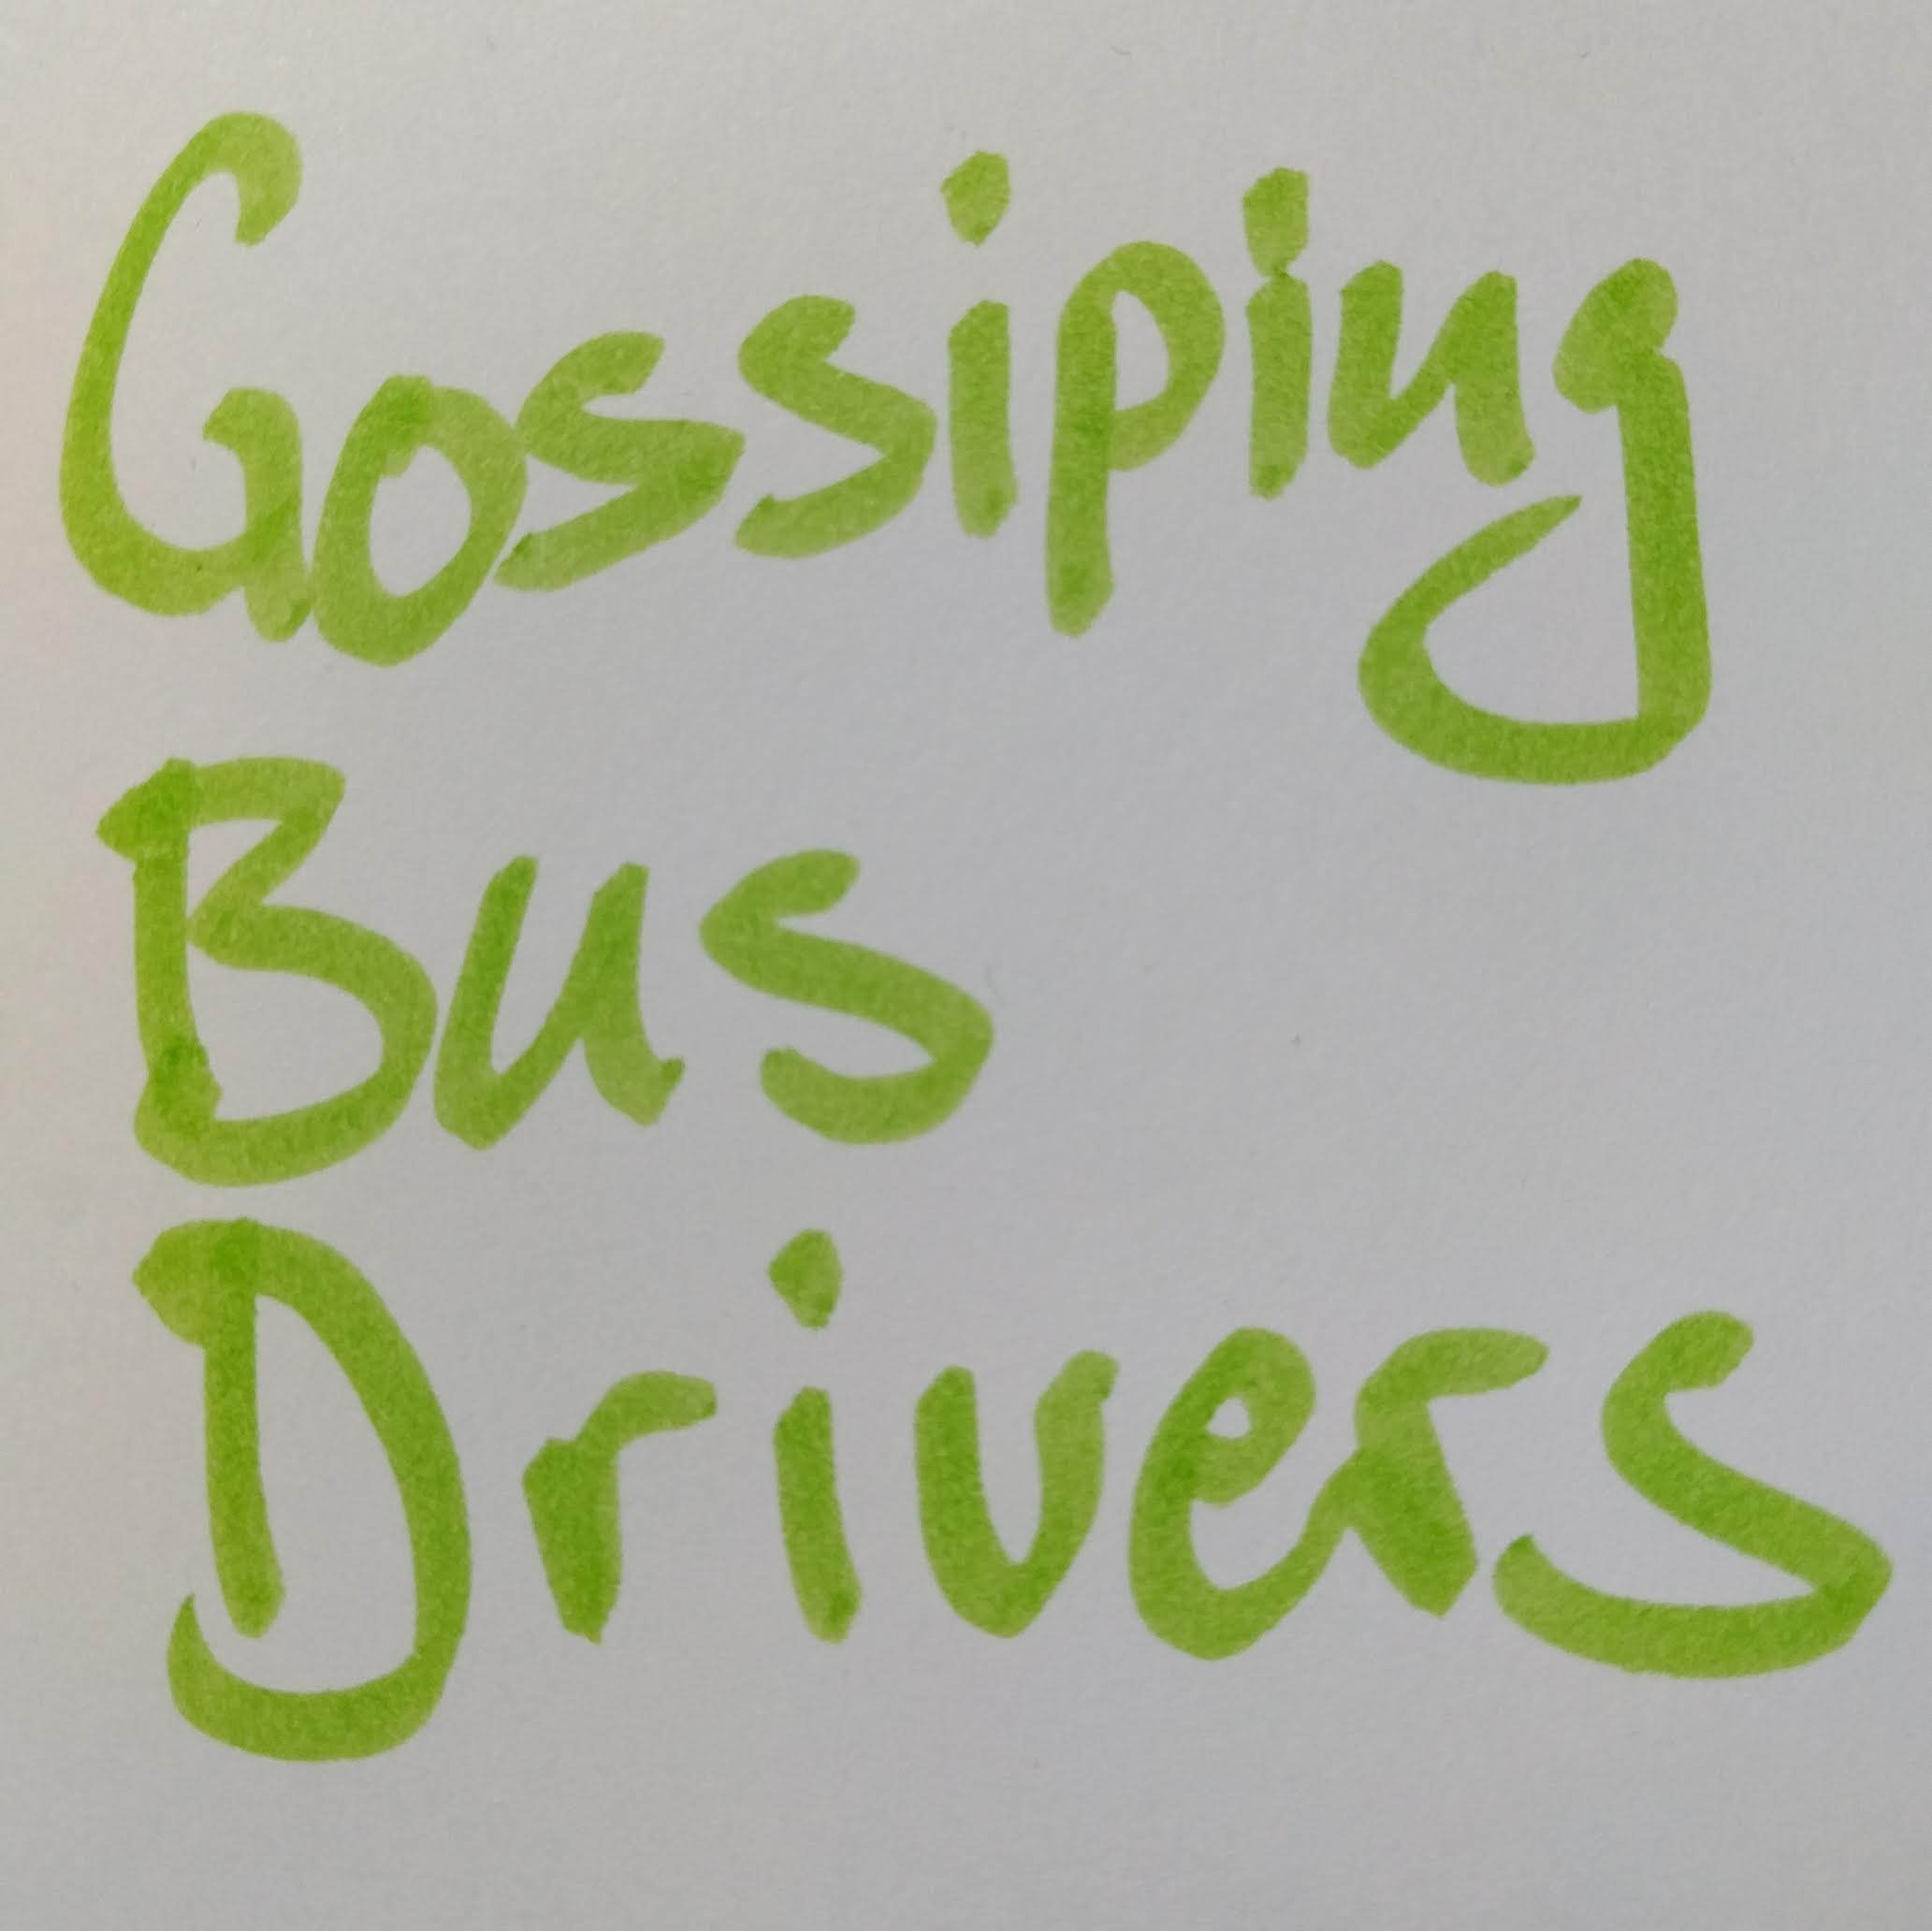 Gossiping
Bus
Drivers